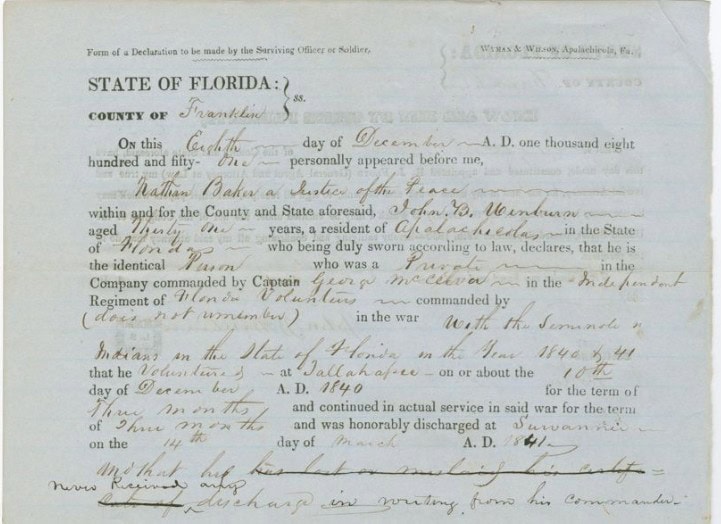 Form of a Declaration to be made by the Surviving Officer or Soldier.
Wyman & Wilson, Apalachicola, Fa.
STATE OF FLORIDA: } ss.
COUNTY OF Franklin
On this Eighth day of December A. D. one thousand eight
hundred and fifty- one personally appeared before me,
Nathan Baker a Justice of the Peace
within and for the County and State aforesaid, John. B.
aged Thirty One years, a resident of Apalachicolas in the State
of Florida who being duly sworn according to law, declares, that he is
the identical Person who was a Private in the
Company commanded by Captain George in the Independent
Regiment of Florida Volunteers commanded by
(does not remember) in the war With the Seminole
Indians in the State of Florida in the Year 1840 & 41
that he Volunteered at Tallahasee on or about the 10th
day of December A. D. 1840 for the term of
Three months and continued in actual service in said war for the term
of Three months and was honorably discharged at
on the 14th day of March A. D. 1841
And that he has lost or mislaid his certifi=
never Received any
cate of discharge in writing from his commander